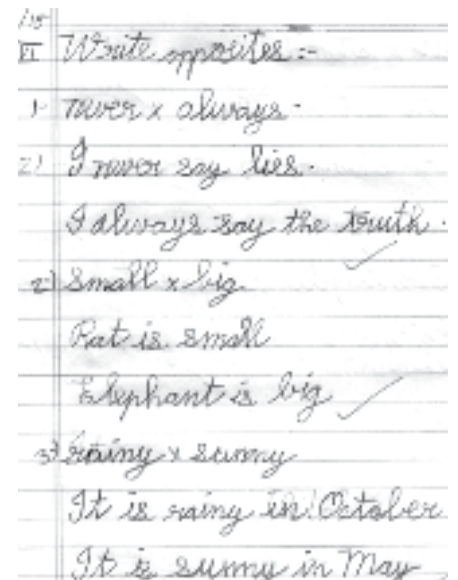 /15
VI Write opposites :-
1. never x always.
2) I never say lies.
I always say the truth.
2) Small x big
Rat is small
Elephant is big
3) rainy x sunny
It is rainy in October
It is sunny in May